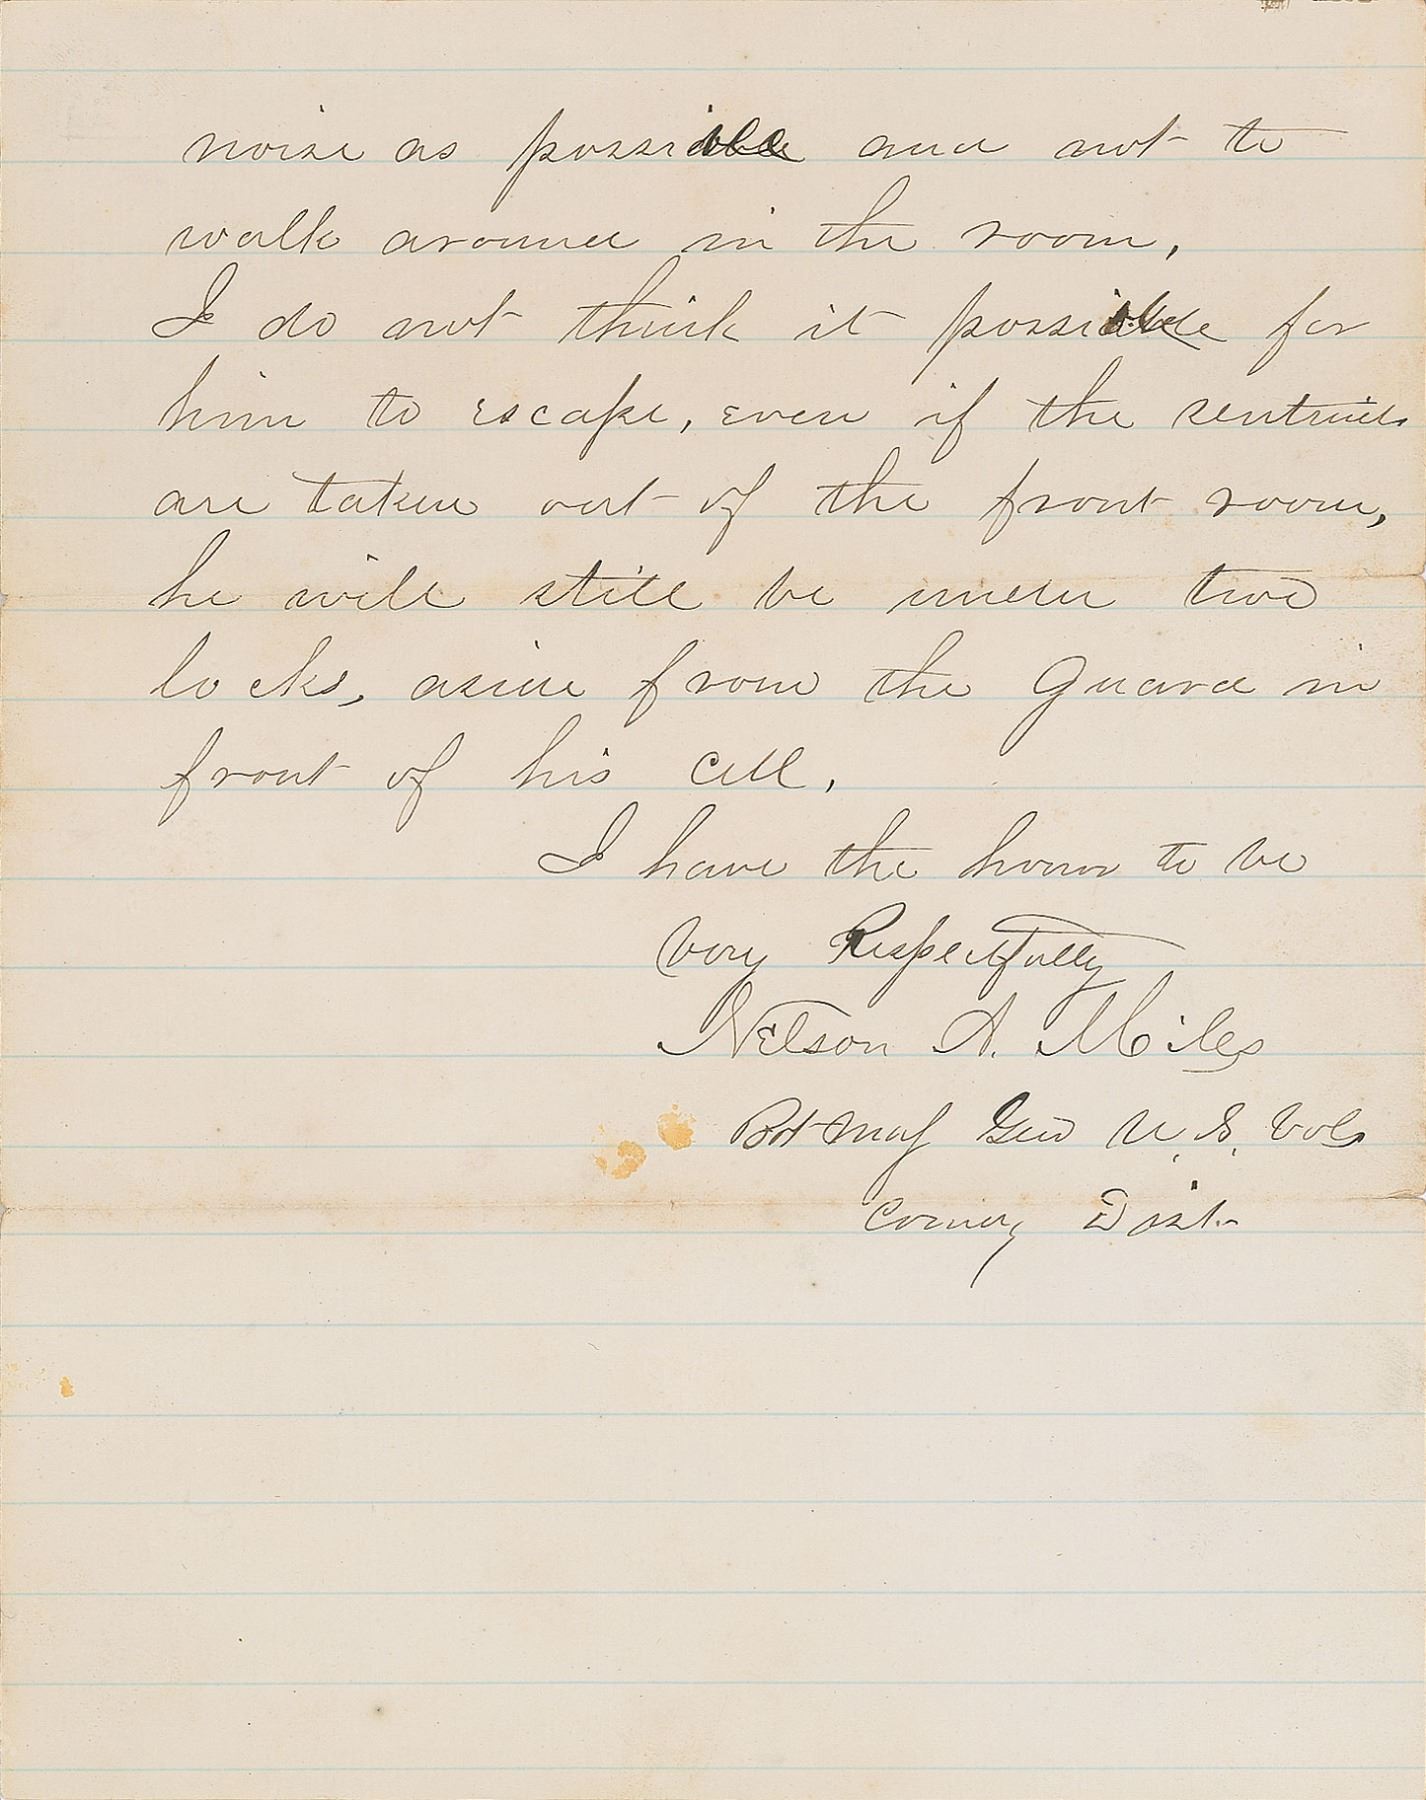 noise as possible and not to
walk around in the room,
I do not think it possible for
him to escape, even if the sentinels
are taken out of the front room,
he will still be under two
locks, aside from the Guard in
front of his cell.
I have the honor to be
Very Respectfully
Nelson A. Miles
Bvt Maj Gen U.S. Vols
Comdg Dist.